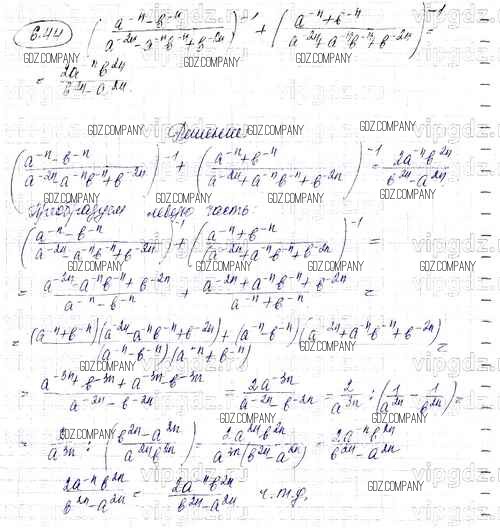 6.44 ((a⁻ⁿ-b⁻ⁿ)/(a⁻²ⁿ-a⁻ⁿb⁻ⁿ+b⁻²ⁿ))⁻¹ + ((a⁻ⁿ+b⁻ⁿ)/(a⁻²ⁿ+a⁻ⁿb⁻ⁿ+b⁻²ⁿ))⁻¹ =
= 2a⁻ⁿb²ⁿ/(b²ⁿ-a²ⁿ).
Решение:
((a⁻ⁿ-b⁻ⁿ)/(a⁻²ⁿ-a⁻ⁿb⁻ⁿ+b⁻²ⁿ))⁻¹ + ((a⁻ⁿ+b⁻ⁿ)/(a⁻²ⁿ+a⁻ⁿb⁻ⁿ+b⁻²ⁿ))⁻¹ = 2a⁻ⁿb²ⁿ/(b²ⁿ-a²ⁿ)
Преобразуем левую часть
((a⁻ⁿ-b⁻ⁿ)/(a⁻²ⁿ-a⁻ⁿb⁻ⁿ+b⁻²ⁿ))⁻¹ + ((a⁻ⁿ+b⁻ⁿ)/(a⁻²ⁿ+a⁻ⁿb⁻ⁿ+b⁻²ⁿ))⁻¹ =
= (a⁻²ⁿ-a⁻ⁿb⁻ⁿ+b⁻²ⁿ)/(a⁻ⁿ-b⁻ⁿ) + (a⁻²ⁿ+a⁻ⁿb⁻ⁿ+b⁻²ⁿ)/(a⁻ⁿ+b⁻ⁿ) =
= ((a⁻ⁿ+b⁻ⁿ)(a⁻²ⁿ-a⁻ⁿb⁻ⁿ+b⁻²ⁿ)+(a⁻ⁿ-b⁻ⁿ)(a⁻²ⁿ+a⁻ⁿb⁻ⁿ+b⁻²ⁿ))/((a⁻ⁿ-b⁻ⁿ)(a⁻ⁿ+b⁻ⁿ)) =
= (a⁻³ⁿ+b⁻³ⁿ+a⁻³ⁿ-b⁻³ⁿ)/(a⁻²ⁿ-b⁻²ⁿ) = 2a⁻³ⁿ/(a⁻²ⁿ-b⁻²ⁿ) = 2/a³ⁿ : (1/a²ⁿ - 1/b²ⁿ) =
= 2/a³ⁿ : ((b²ⁿ-a²ⁿ)/(a²ⁿb²ⁿ)) = 2a²ⁿb²ⁿ/(a³ⁿ(b²ⁿ-a²ⁿ)) = 2a⁻ⁿb²ⁿ/(b²ⁿ-a²ⁿ)
2a⁻ⁿb²ⁿ/(b²ⁿ-a²ⁿ) = 2a⁻ⁿb²ⁿ/(b²ⁿ-a²ⁿ) ч.т.д.
GDZ.COMPANY
vipgdz.ru